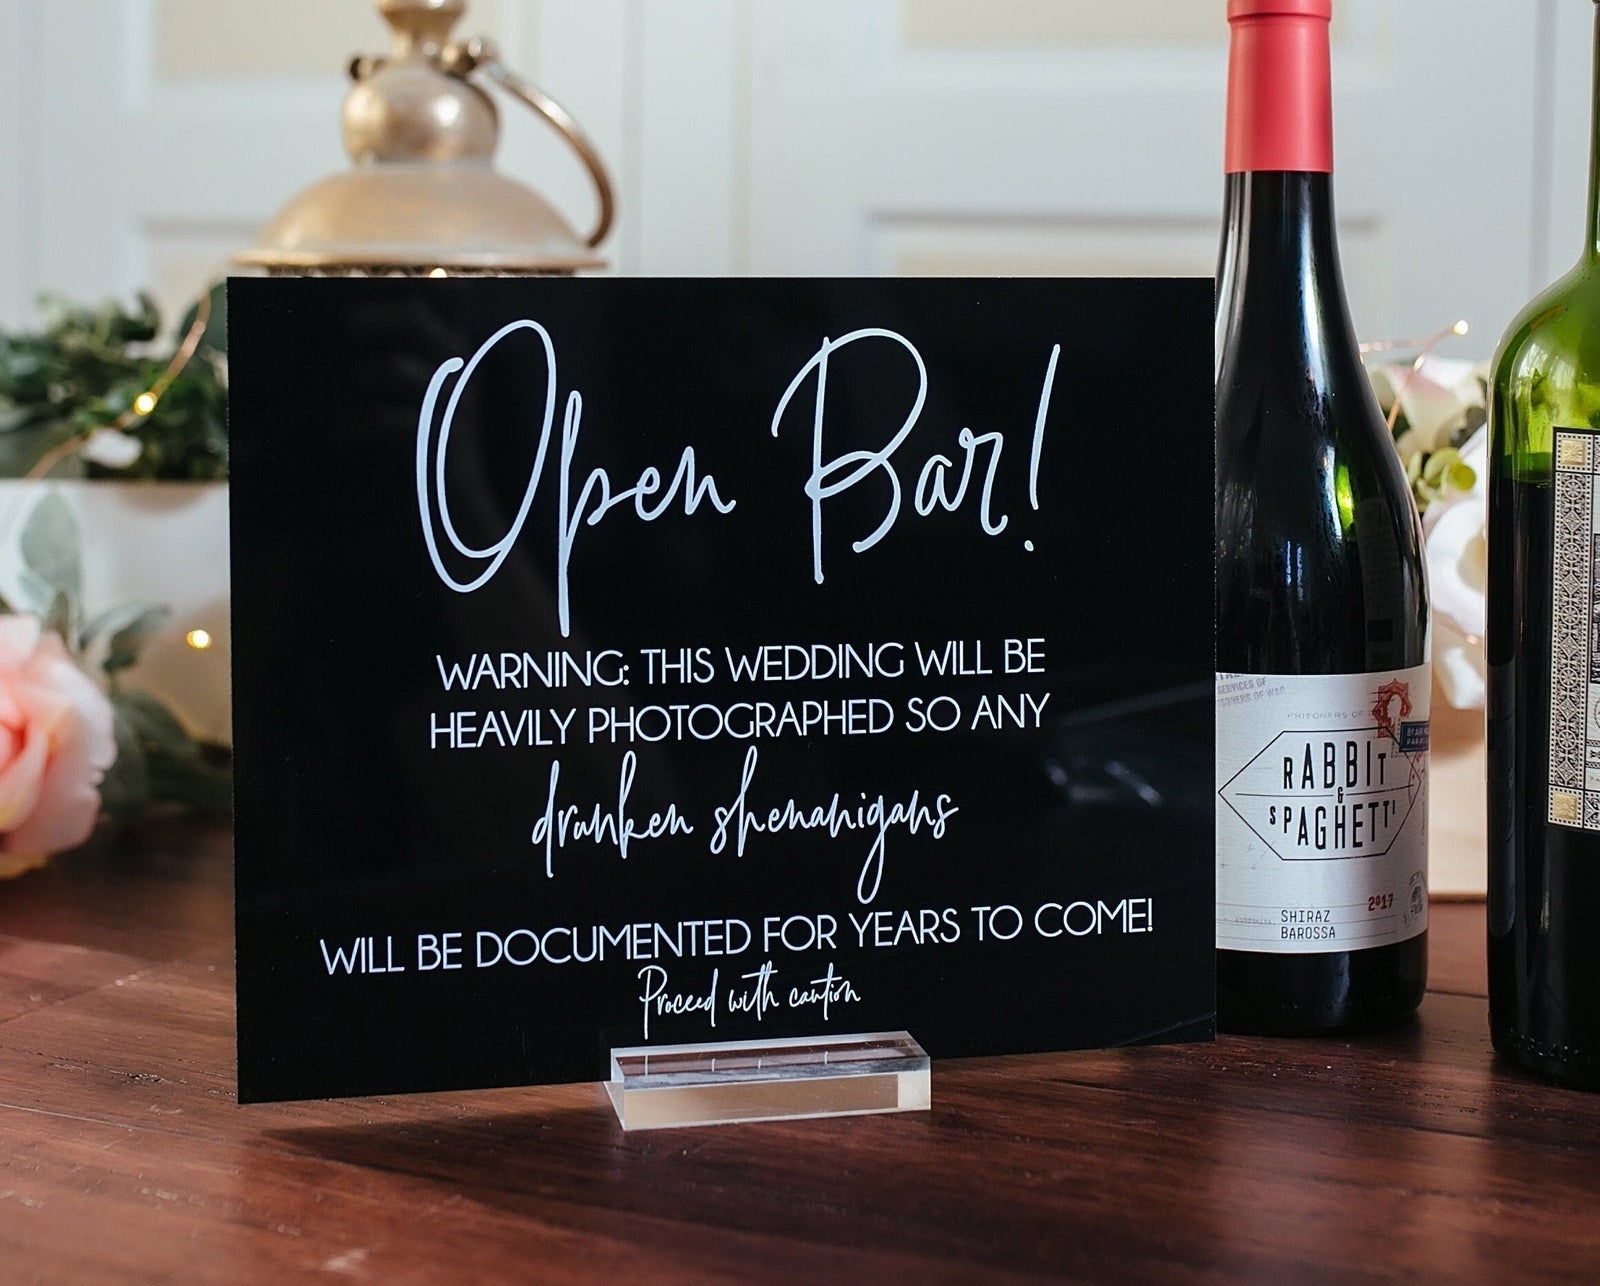 Open Bar!
WARNING: THIS WEDDING WILL BE
HEAVILY PHOTOGRAPHED SO ANY
drunken shenanigans
WILL BE DOCUMENTED FOR YEARS TO COME!
Proceed with caution
SERVICES OF
PRISONERS OF
RABBIT
&
SPAGHETTI
2017
SHIRAZ
BAROSSA